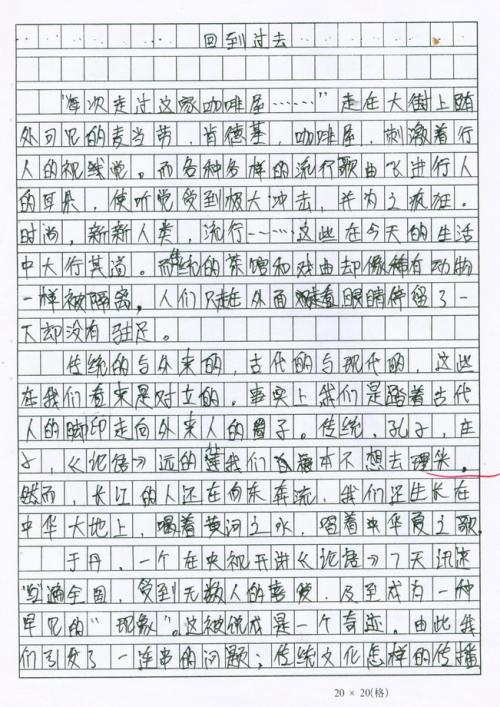 回到过去
“每次走过这家咖啡屋……”走在大街上随
处可见的麦当劳，肯德基，咖啡屋，刺激着行
人的视线觉。而各种各样的流行歌曲飞进行人
的耳朵，使听觉受到极大冲击，并为之疯狂。
时尚，新新人类，流行……这些在今天的生活
中大行其道。而传统的茶馆和戏曲却像稀有动物
一样被隔离，人们只是在外面眼睛停留了一
下却没有驻足。
传统的与外来的，古代的与现代的，这些
在我们看来是对立的。事实上我们是踏着古代
人的脚印走向外来人的圈子。传统，孔子，庄
子，《论语》远的我们根本不想去理睬。
然而，长江的人还在向东奔流，我们还生长在
中华大地上，喝着黄河之水，唱着中华夏之歌。
于丹，一个在央视开讲《论语》7天迅速
红遍全国，受到无数人的喜爱，及至成为一种
罕见的“现象”。这被说成是一个奇迹。由此我
们引发了一连串的问题；传统文化怎样的传播
20×20(格)